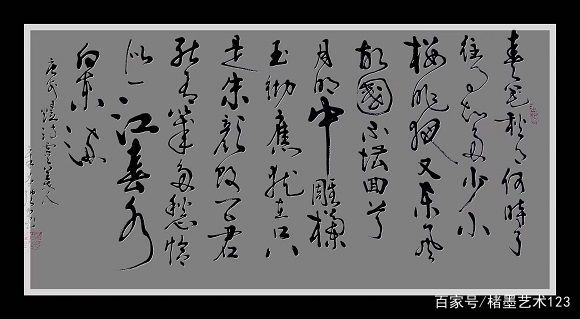 春花秋月何時了
往事知多少小
樓昨夜又東風
故國不堪回首
月明中雕欄
玉砌應猶在只
是朱顏改問君
能有幾多愁恰
似一江春水
向東流
百家号/楮墨艺术123